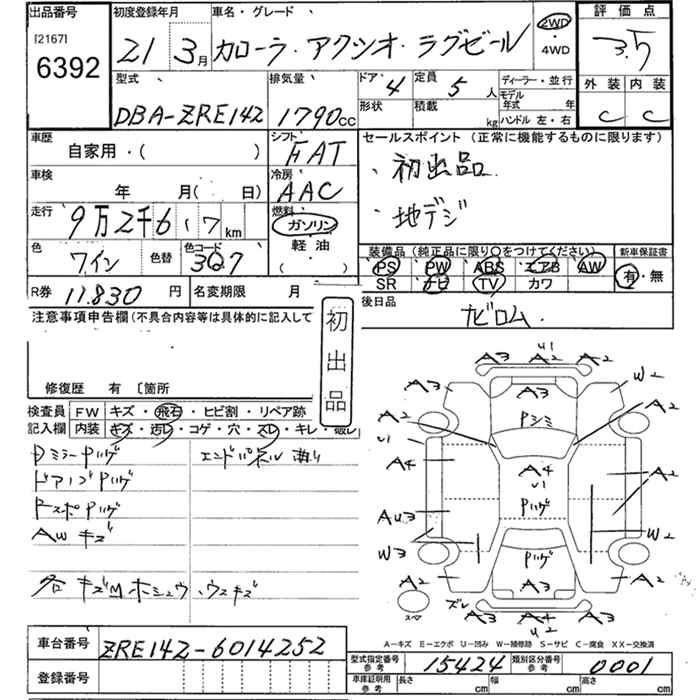 出品番号 初度登録年月 車名・グレード 評価点
[2167] 6392
21 3月 カローラ・アクシオ・ラグゼール 2WD ・4WD 3.5
型式 排気量 ドア 定員 ディーラー・並行 外装 内装
DBA-ZRE142 1790cc 4 5人 モデル年式 年
形状 積載 kg ハンドル 左・右 C C
車歴 シフト セールスポイント (正常に機能するものに限ります)
自家用・( ) FAT ・初出品
車検 年 月( 日) 冷房 AAC
・地デジ
走行 9万2千617km 燃料 ガソリン 軽油 ( )
色 ワイン 色替 色コード 3Q7
装備品 (純正品に限り○をつけてください) 新車保証書
PS PW ABS エアB AW 有・無
SR ナビ TV カワ
R券 11.830円 名変期限 月 後日品
ナビロム.
注意事項申告欄(不具合内容等は具体的に記入して
初出品
修復歴 有 〔箇所
検査員 FW キズ・飛石・ヒビ割・リペア跡
記入欄 内装 キズ・汚レ・コゲ・穴・スレ・キレ・破レ
Dミラー Pハゲ エンドパネル 曲り
ドアノブ Pハゲ
FスポPハゲ
AW キズ
各キズMホシュウ、ウスキズ
A3 U1 A2 A2
A3 A3 W2
A2 Pシミ A2
U1 A4 A4 U1 A2
AU3 Pハゲ W2
W3 Pハゲ
A2 A3 A2
スペア ズレ A3 A4 U2 A2
A-キズ E-エクボ U-凹み W-補修跡 S-サビ C-腐食 XX-交換済
車台番号 ZRE142-6014252
型式指定番号 参考 15424 類別区分番号 参考 0001
登録番号
車庫証明用 参考 長さ cm 幅 cm 高さ cm